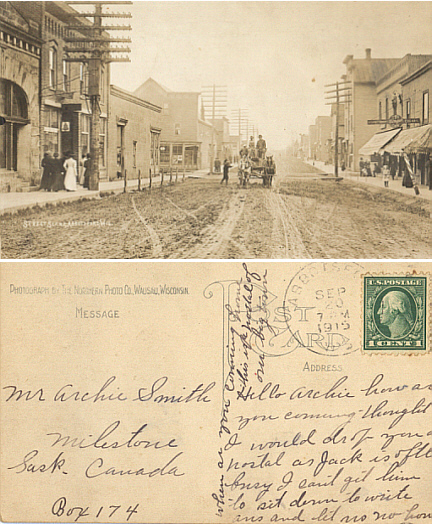 STREET SCENE ABBOTSFORD, WIS.
PHOTOGRAPH BY THE NORTHERN PHOTO CO., WAUSAU, WISCONSIN.
MESSAGE
POST
CARD
ADDRESS
SEP
20
7 AM
1915
U.S. POSTAGE
1 CENT 1
Mr Archie Smith
Milestone
Sask. Canada
Box 174
Hello Archie how are
you coming thought
I would drop you a
postal as Jack is often
busy I cant git him
to sit down to write
ans and let us no how
when are you coming home
this is a postal of
our big town